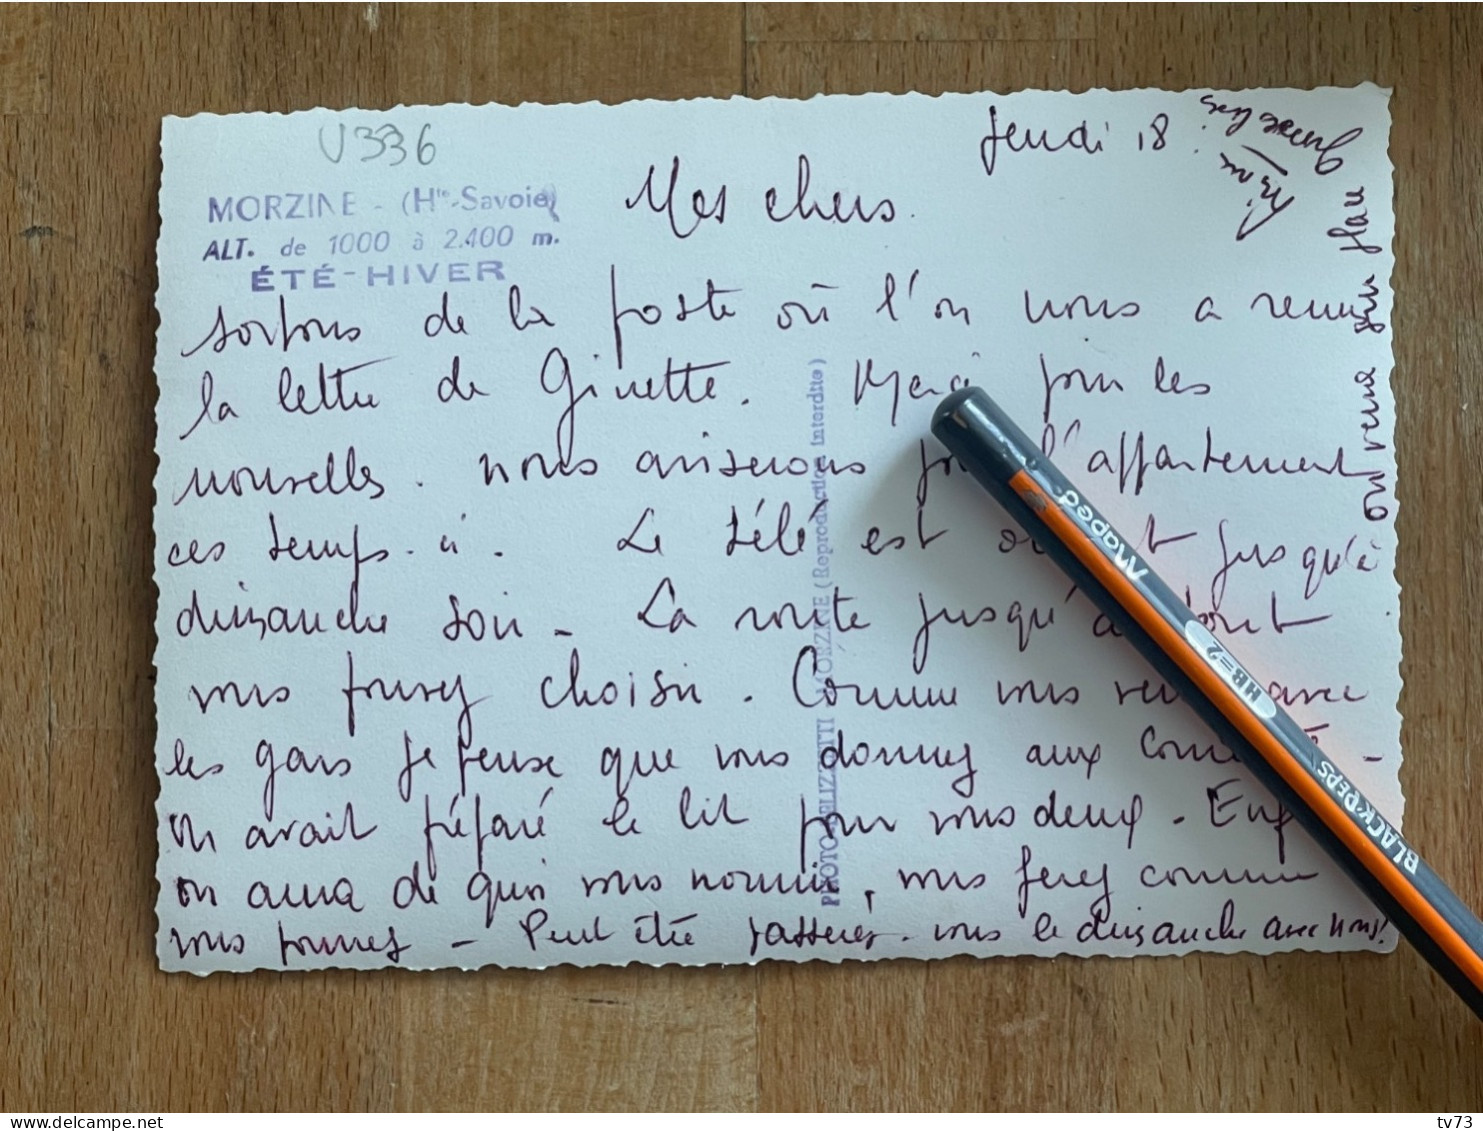 U336
MORZINE - (Hte-Savoie)
ALT. de 1000 à 2.400 m.
ÉTÉ-HIVER
Jeudi 18.
Mes chers.
sortons de la poste où l'on nous a remis
la lettre de Ginette. Merci pour les
nouvelles. nous aviserons l'appartement
ces temps-ci. Le télé est jusqu'à
dimanche soir - La route jusqu'à
vous pouvez choisir. Comme vous avec
les gars je pense que vous donnez aux
on avait préparé le lit pour vous deux -
on aura de quoi vous nourrir, vous ferez comme
vous pouvez - Peut être passerez-vous le dimanche avec nous!
on vous
PHOTO PELIZZOTTI MORZINE (Reproduction interdite)
Maped
HB=2
BLACK'PEPS
delcampe.net
tv73